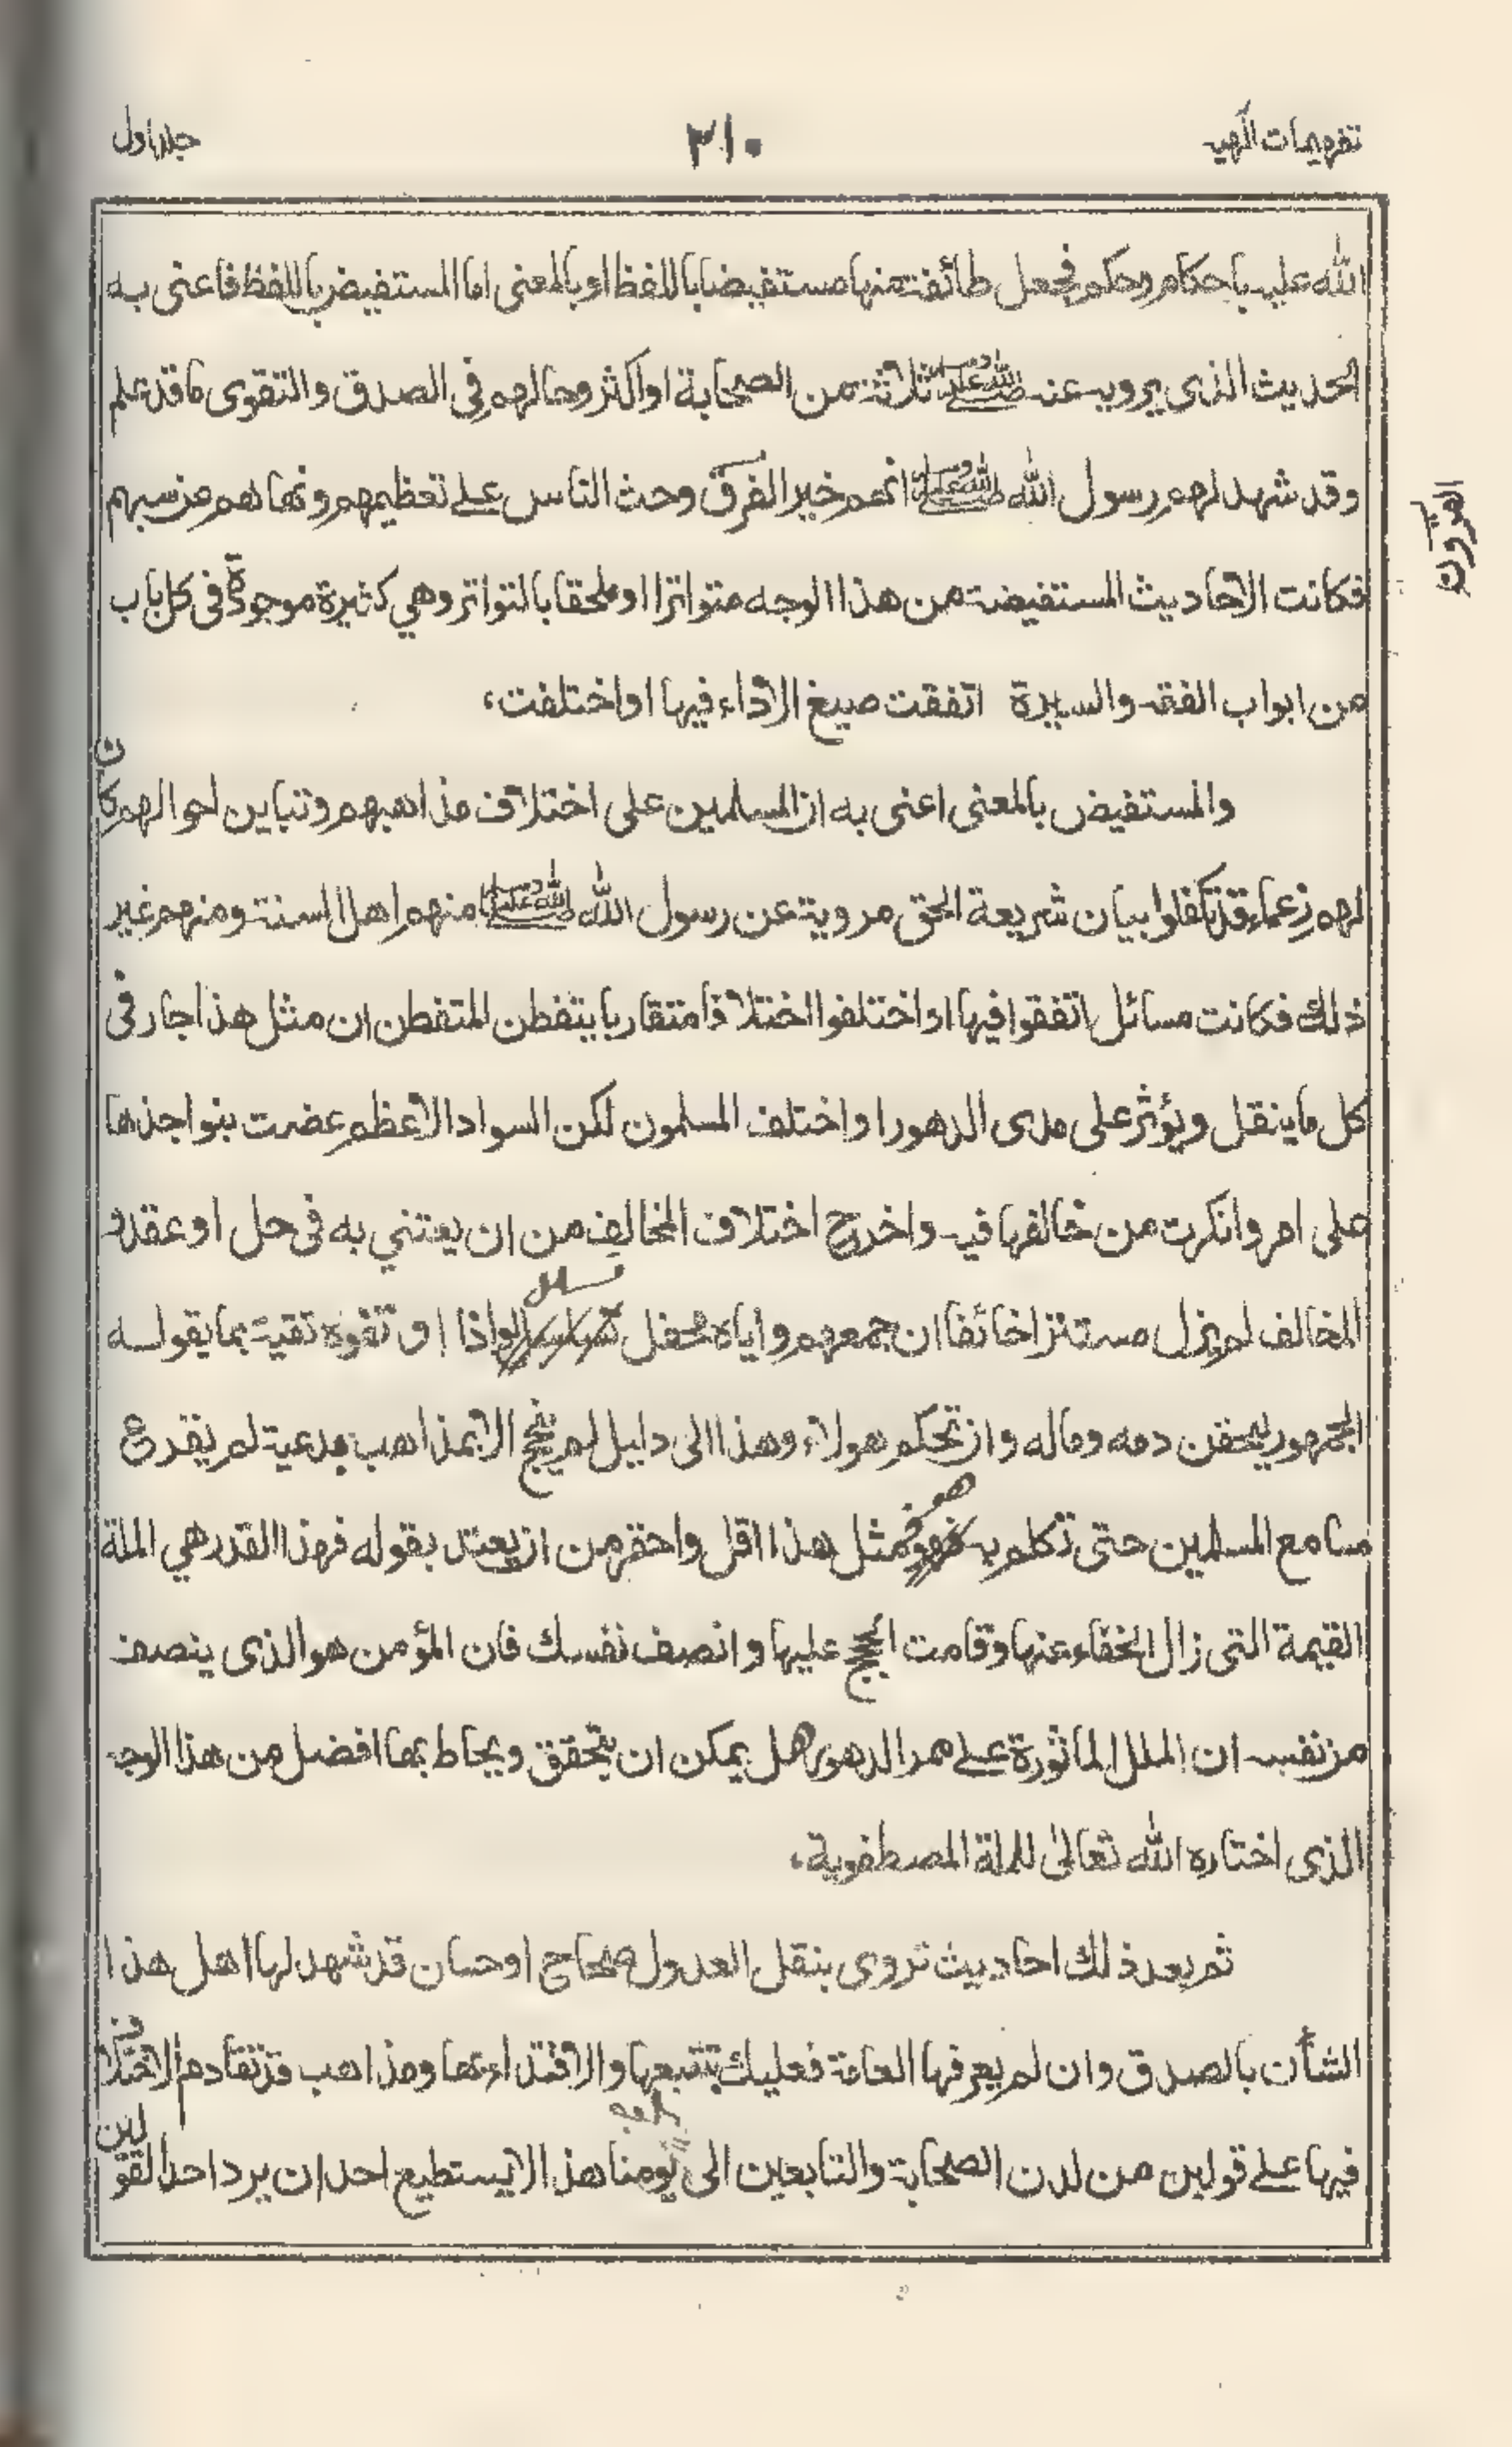 تفهيمات الٰهيه
٣١٠
جلد اول
الله عليه باحكام وحكم فجعل طائفة منها مستفيضا باللفظ او بالمعنى اما المستفيض باللفظ فاعنى به
الحديث الذى يرويه عنه صلى الله عليه وسلم ثلاثة من الصحابة او اكثر وحالهم فى الصدق والتقوى ما قد علم
وقد شهد لهم رسول الله صلى الله عليه وسلم انهم خير الفرق وحث الناس على تعظيمهم ونهاهم عن سبهم
القرون
فكانت الاحاديث المستفيضة من هذا الوجه متواترا او ملحقا بالتواتر وهي كثيرة موجودة فى كل باب
من ابواب الفقه والسيرة اتفقت صيغ الاداء فيها او اختلفت،
والمستفيض بالمعنى اعنى به ان المسلمين على اختلاف مذاهبهم وتباين احوالهم كان
لهم زعماء قد تكفلوا بيان شريعة الحق مروية عن رسول الله صلى الله عليه وسلم منهم اهل السنة ومنهم غير
ذلك فكانت مسائل اتفقوا فيها او اختلفوا اختلافا متقاربا يتفطن المتفطن ان مثل هذا جار فى
كل ما ينقل ويؤثر على مدى الدهور او اختلف المسلمون لكن السواد الاعظم عضت بنواجذها
على امر وانكرت من خالفها فيه واخرج اختلاف المخالف من ان يعتني به فى حل او عقد و
المخالف لم يزل مستترا خائفا ان جمعهم واياه محفل لواذا او تفوه تقية بما يقوله
الجمهور ليحقن دمه وماله وان تحكم هولاء وهذا الى دليل لم ينجح الا بمذاهب بدعية لم يقرع
مسامع المسلمين حتى تكلم به هو فمثل هذا اقل واحقر من ان يعتد بقوله فهذا القدر هي الملة
القيمة التى زال الخفاء عنها وقامت الحجج عليها وانصف نفسك فان المؤمن هو الذى ينصف
من نفسه ان الملل الماثورة على ممر الدهور هل يمكن ان يتحقق ويحاط بها افضل من هذا الوجه
الذى اختاره الله تعالىٰ للملة المصطفوية،
ثم بعد ذلك احاديث تروى بنقل العدول صحاح او حسان قد شهد لها اهل هذا
الشأن بالصدق وان لم يعرفها العامة فعليك بتتبعها والاقتداء بها ومذاهب قد تقادم الاختلاف
فيها على قولين من لدن الصحابة والتابعين الى يومنا هذا لا يستطيع احد ان يرد احد القولين